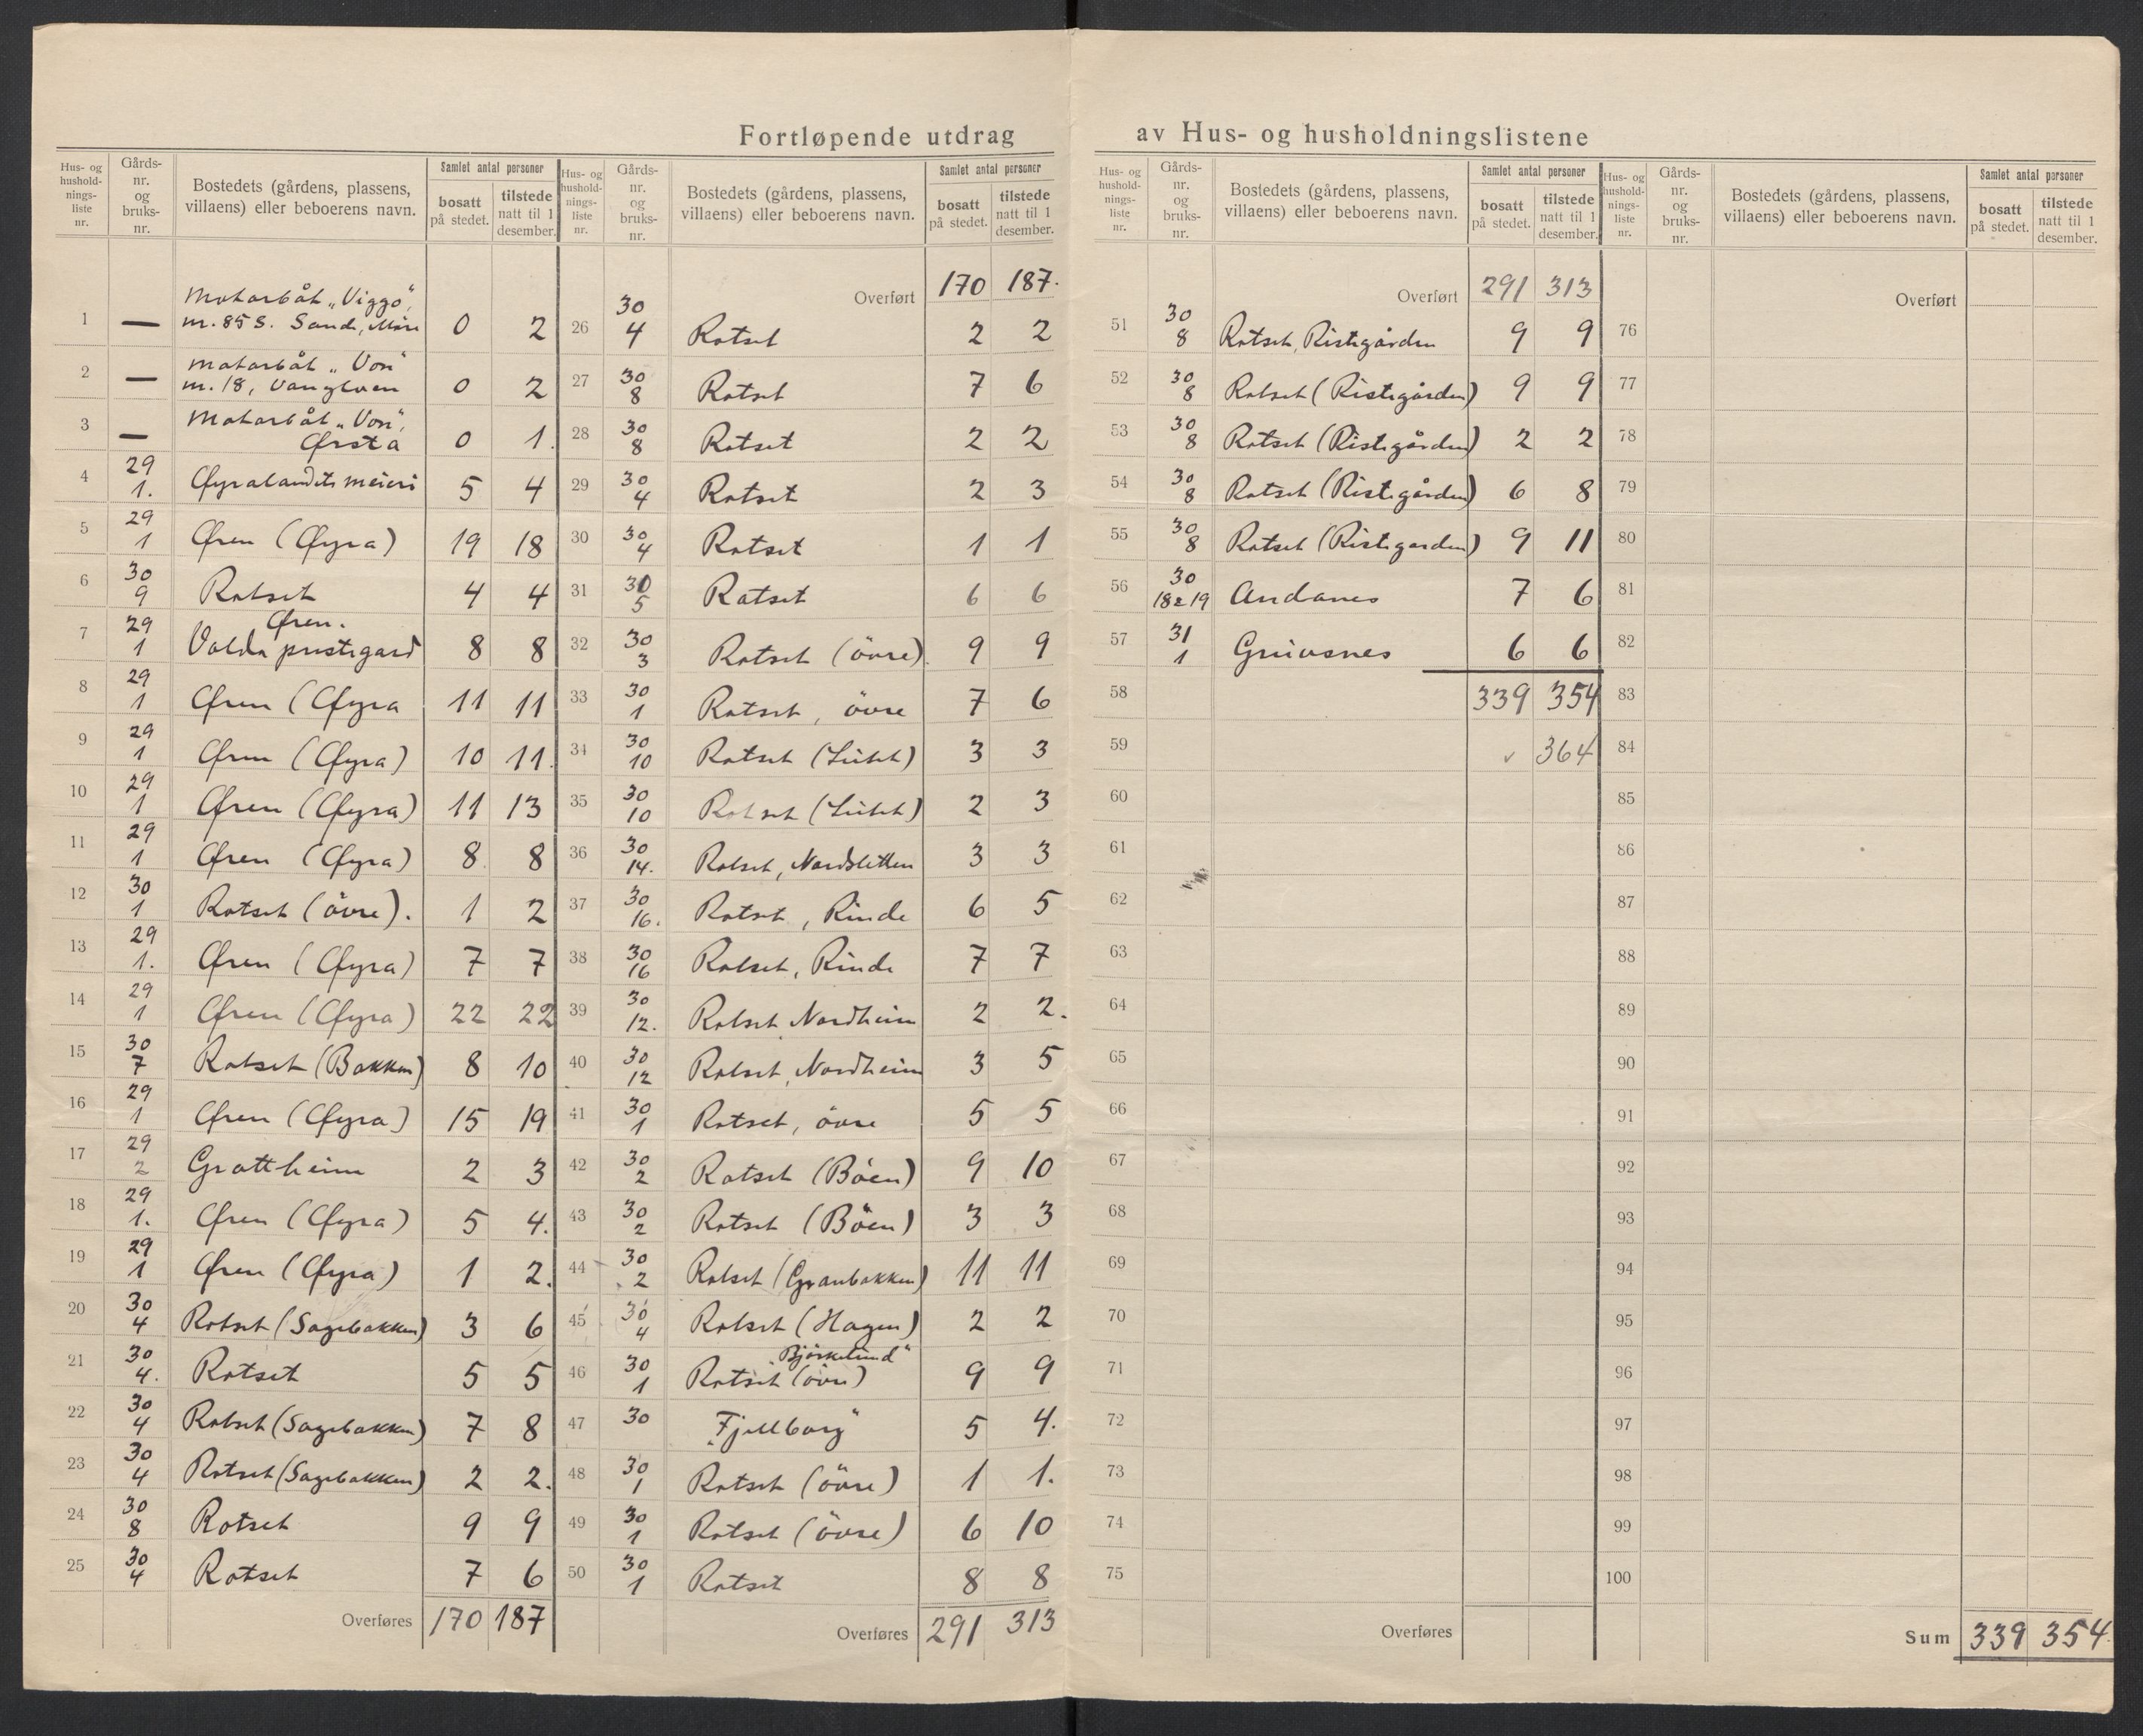 Fortløpende utdrag av Hus- og husholdningslistene
Hus- og husholdnings-liste nr. | Gårds-nr. og bruks-nr. | Bostedets (gårdens, plassens, villaens) eller beboerens navn. | Samlet antal personer bosatt på stedet. | tilstede natt til 1 desember.
1 — Motorbåt „Viggo", m. 85 S. Sande, Møre 0 2
2 — Motorbåt „Von" m. 18, Vanylven 0 2
3 — Motorbåt „Von", Ørsta 0 1.
4 29 1. Øyralandets meieri 5 4
5 29 1 Øren (Øyra) 19 18
6 30 9 Rotset 4 4
7 29 1 Øren. Volda prestegard 8 8
8 29 1 Øren (Øyra 11 11
9 29 1 Øren (Øyra) 10 11.
10 29 1 Øren (Øyra) 11 13
11 29 1 Øren (Øyra) 8 8
12 30 1 Rotset (övre). 1 2
13 29 1. Øren (Øyra) 7 7
14 29 1 Øren (Øyra) 22 22
15 30 7 Rotset (Bakken) 8 10
16 29 1 Øren (Øyra) 15 19
17 29 2 Grottheim 2 3
18 29 1. Øren (Øyra) 5 4.
19 29 1 Øren (Øyra) 1 2.
20 30 4 Rotset (Sagebakken) 3 6
21 30 4. Rotset 5 5
22 30 4 Rotset (Sagebakken) 7 8
23 30 4 Rotset (Sagebakken) 2 2.
24 30 8 Rotset 9 9
25 30 4 Rotset 7 6
Overføres 170 187
Hus- og husholdnings-liste nr. | Gårds-nr. og bruks-nr. | Bostedets (gårdens, plassens, villaens) eller beboerens navn. | Samlet antal personer bosatt på stedet. | tilstede natt til 1 desember.
Overført 170 187.
26 30 4 Rotset 2 2
27 30 8 Rotset 7 6
28 30 8 Rotset 2 2
29 30 4 Rotset 2 3
30 30 4 Rotset 1 1
31 30 5 Rotset 6 6
32 30 3 Rotset (övre). 9 9
33 30 1 Rotset, övre 7 6
34 30 10 Rotset 3 3
35 30 10 Rotset 2 3
36 30 14. Rotset, Nordsletten 3 3
37 30 16. Rotset, Rinde 6 5
38 30 16 Rotset, Rinde 7 7
39 30 12. Rotset Nordheim 2 2.
40 30 12 Rotset, Nordheim 3 5
41 30 1 Rotset, övre 5 5
42 30 2 Rotset (Böen) 9 10
43 30 2 Rotset (Böen) 3 3
44 30 2 Rotset (Granbakken) 11 11
45 30 4 Rotset (Hagen) 2 2
46 30 1 Rotset (övre) „Björkelund" 9 9
47 30 „Fjellborg" 5 4.
48 30 1 Rotset (övre) 1 1.
49 30 1 Rotset (övre) 6 10
50 30 1 Rotset 8 8
Overføres 291 313
Hus- og husholdnings-liste nr. | Gårds-nr. og bruks-nr. | Bostedets (gårdens, plassens, villaens) eller beboerens navn. | Samlet antal personer bosatt på stedet. | tilstede natt til 1 desember.
Overført 291 313
51 30 8 Rotset, Ristegården 9 9
52 30 8 Rotset (Ristegården) 9 9
53 30 8 Rotset (Ristegården) 2 2
54 30 8 Rotset (Ristegården) 6 8
55 30 8 Rotset (Ristegarden) 9 11
56 30 18 & 19 Andanes 7 6
57 31 1 Greivsnes 6 6
58 339 354
59 ✓ 364
60
61
62
63
64
65
66
67
68
69
70
71
72
73
74
75
Overføres
Hus- og husholdnings-liste nr. | Gårds-nr. og bruks-nr. | Bostedets (gårdens, plassens, villaens) eller beboerens navn. | Samlet antal personer bosatt på stedet. | tilstede natt til 1 desember.
Overført
76
77
78
79
80
81
82
83
84
85
86
87
88
89
90
91
92
93
94
95
96
97
98
99
100
Sum 339 354.